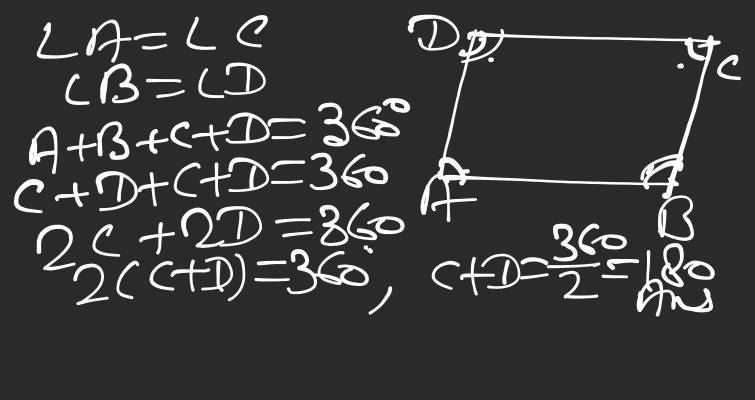 ∠A=∠C
∠B=∠D
A+B+C+D=360°
C+D+C+D=360
2C+2D=360
2(C+D)=360, C+D=360/2=180
Ans
D
C
A
B